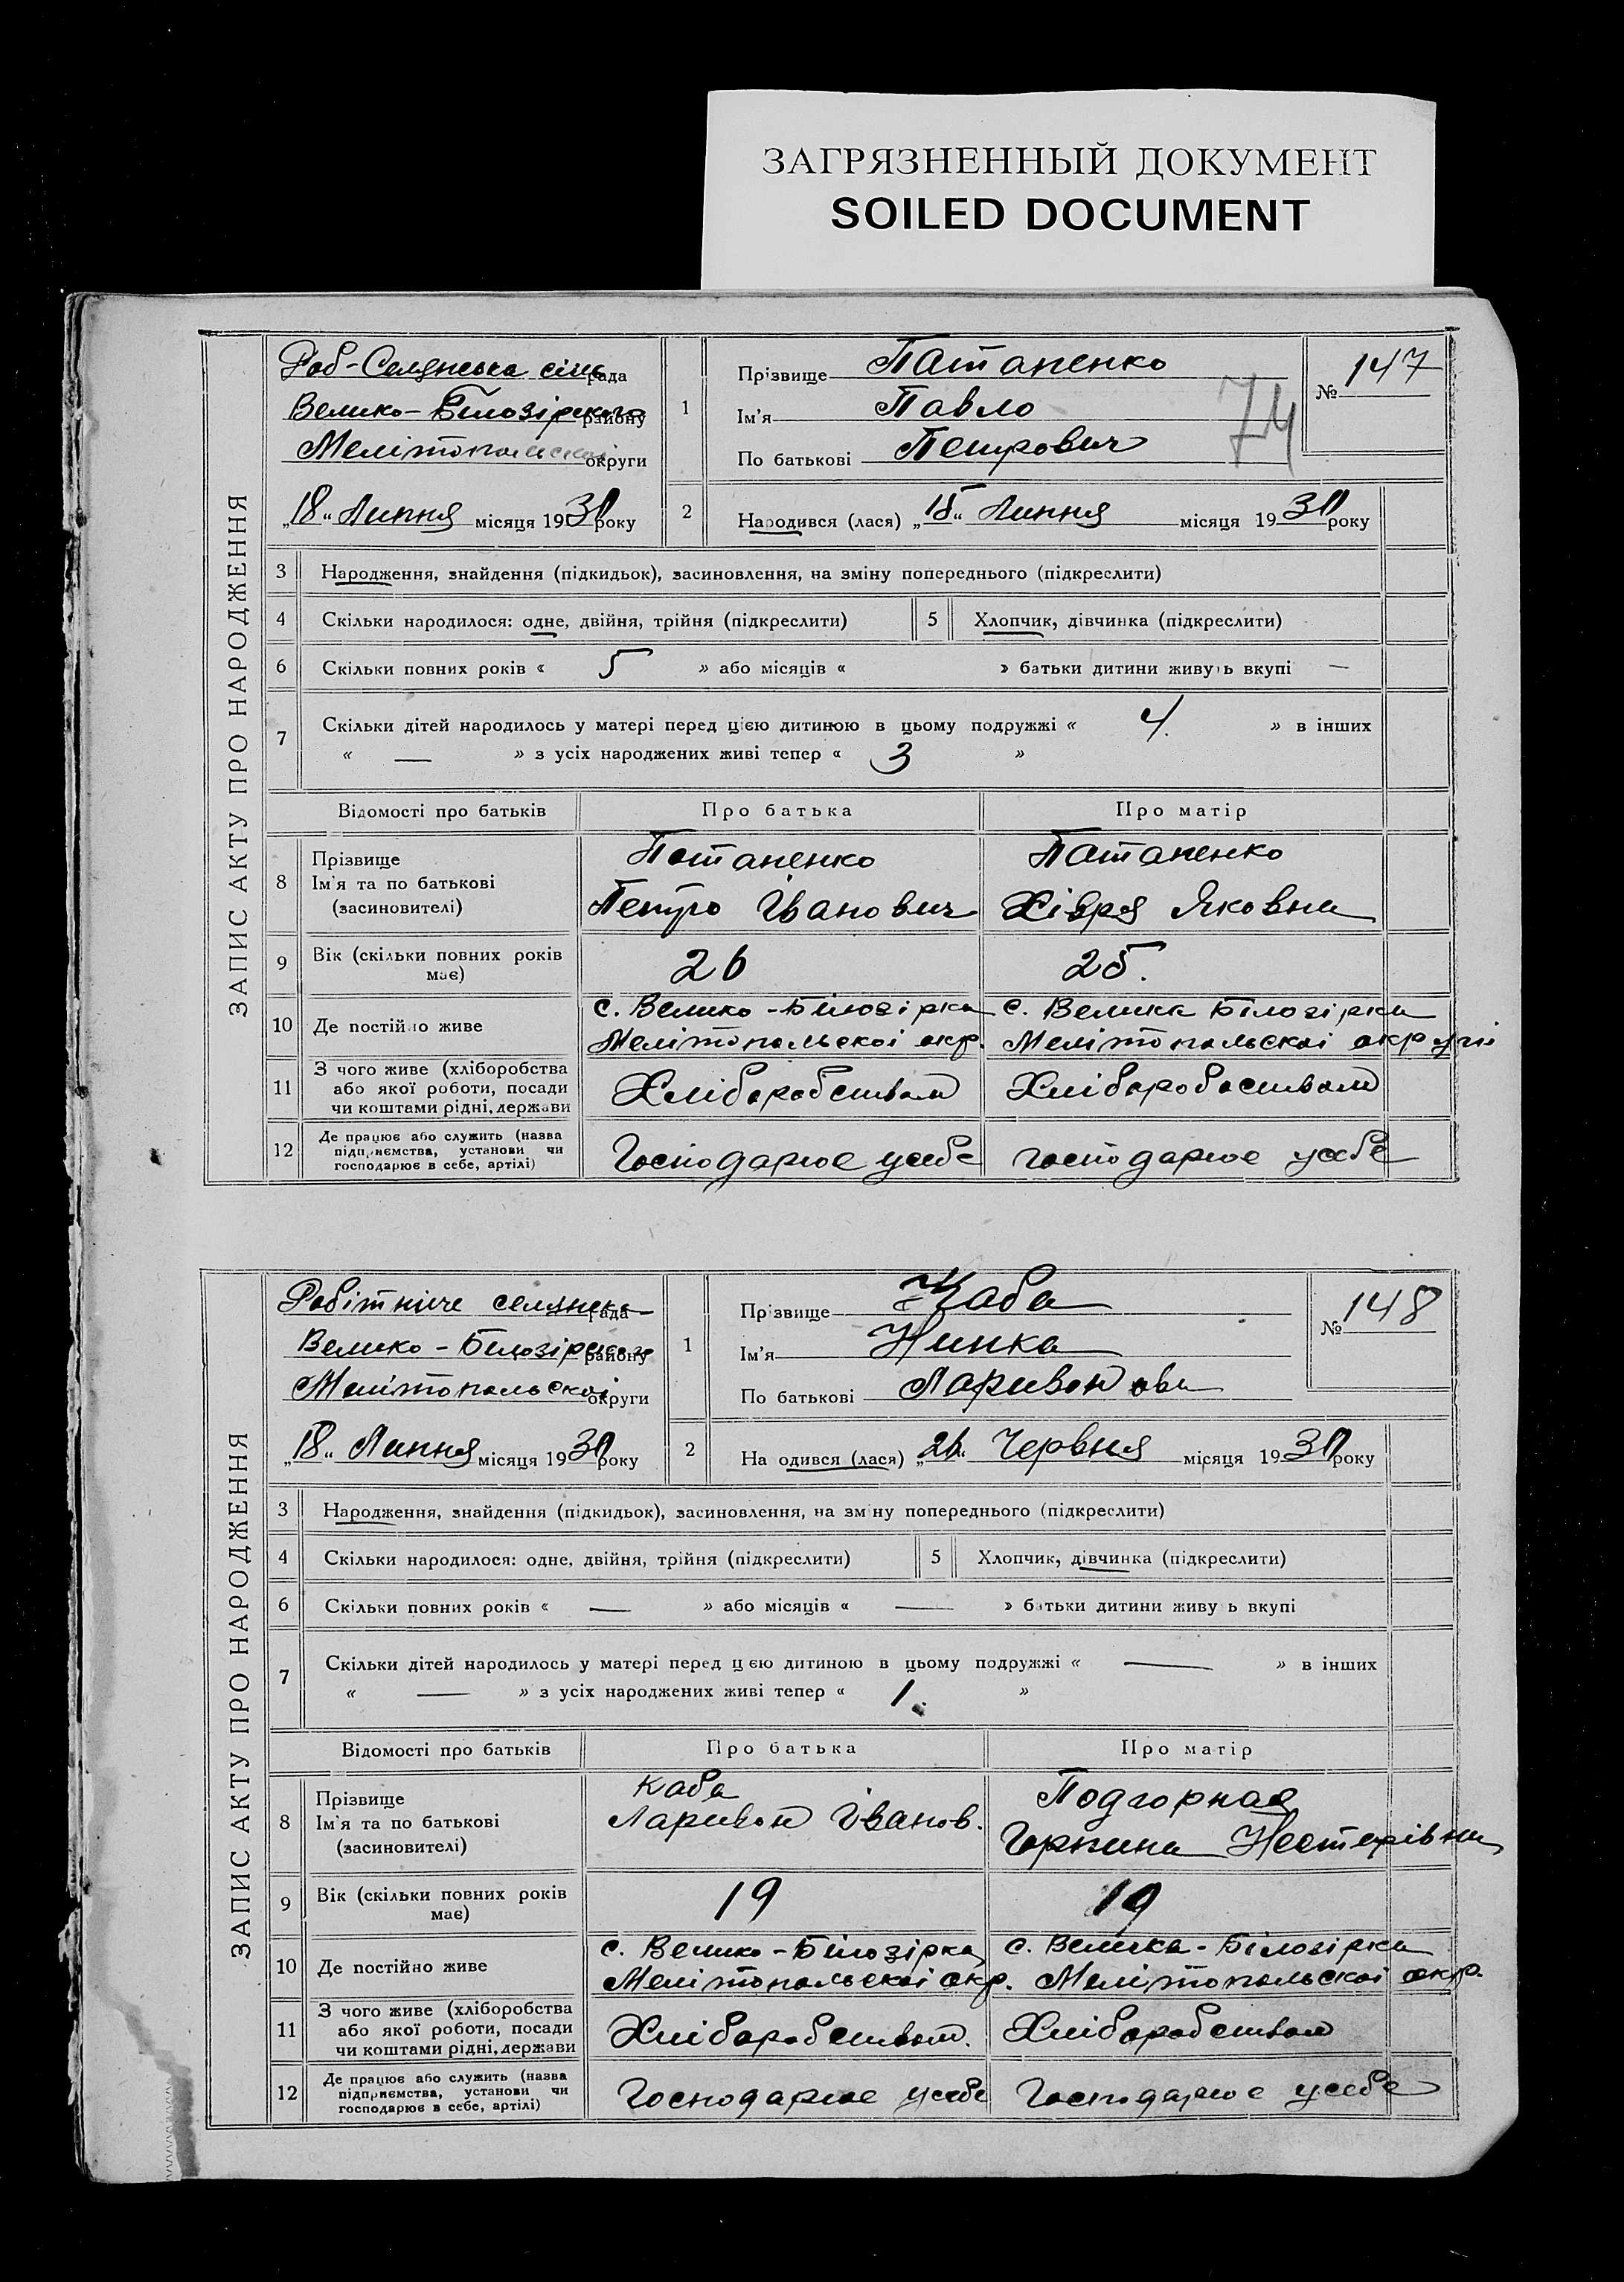 ЗАГРЯЗНЕННЫЙ ДОКУМЕНТ
SOILED DOCUMENT
ЗАПИС АКТУ ПРО НАРОДЖЕННЯ
Роб-Селянська сіль рада
Велико-Білозірського району
Мелітопольської округи
„18“ Липня місяця 1930 року
1
Прізвище Патапенко
Ім'я Павло
По батькові Петрович
74
№ 147
2
Народився (лася) „15“ Липня місяця 1930 року
3 Народження, знайдення (підкидьок), засиновлення, на зміну попереднього (підкреслити)
4 Скільки народилося: одне, двійня, трійня (підкреслити) 5 Хлопчик, дівчинка (підкреслити)
6 Скільки повних років « 5 » або місяців « » батьки дитини живуть вкупі —
7 Скільки дітей народилось у матері перед цією дитиною в цьому подружжі « 4. » в інших
« — » з усіх народжених живі тепер « 3 »
Відомості про батьків Про батька Про матір
8 Прізвище
Ім'я та по батькові
(засиновителі)
Потапенко
Петро Іванович
Патапенко
Хівря Яковна
9 Вік (скільки повних років має) 26 25.
10 Де постійно живе
с. Велико-Білозірка
Мелітопольскоі окр.
с. Велика Білозірка
Мелітопольскоі округи
11 З чого живе (хліборобства
або якої роботи, посади
чи коштами рідні, держави
Хліборобством
Хліборобоством
12 Де працює або служить (назва
підприємства, установи чи
господарює в себе, артілі)
Господарює усебе
господарює усебе
ЗАПИС АКТУ ПРО НАРОДЖЕННЯ
Робітниче селянска рада
Велико-Білозірского району
Мелітопольскоі округи
„18“ Липня місяця 1930 року
1
Прізвище Каба
Ім'я Нинка
По батькові Ларивонова
№ 148
2
На одився (лася) „26“ Червня місяця 1930 року
3 Народження, знайдення (підкидьок), засиновлення, на зміну попереднього (підкреслити)
4 Скільки народилося: одне, двійня, трійня (підкреслити) 5 Хлопчик, дівчинка (підкреслити)
6 Скільки повних років « — » або місяців « — » батьки дитини живу ь вкупі
7 Скільки дітей народилось у матері перед цією дитиною в цьому подружжі « — » в інших
« — » з усіх народжених живі тепер « 1. »
Відомості про батьків Про батька Про матір
8 Прізвище
Ім'я та по батькові
(засиновителі)
Каба
Ларивон Іванов.
Подгорная
Горпина Нестерівна
9 Вік (скільки повних років має) 19 19
10 Де постійно живе
с. Велико-Білозірка
Мелітопольскоі окр.
с. Велика-Білозірка
Мелітопольскоі окр.
11 З чого живе (хліборобства
або якої роботи, посади
чи коштами рідні, держави
Хліборобством.
Хліборобством
12 Де працює або служить (назва
підприємства, установи чи
господарює в себе, артілі)
Господарює усебе
Господарює усебе